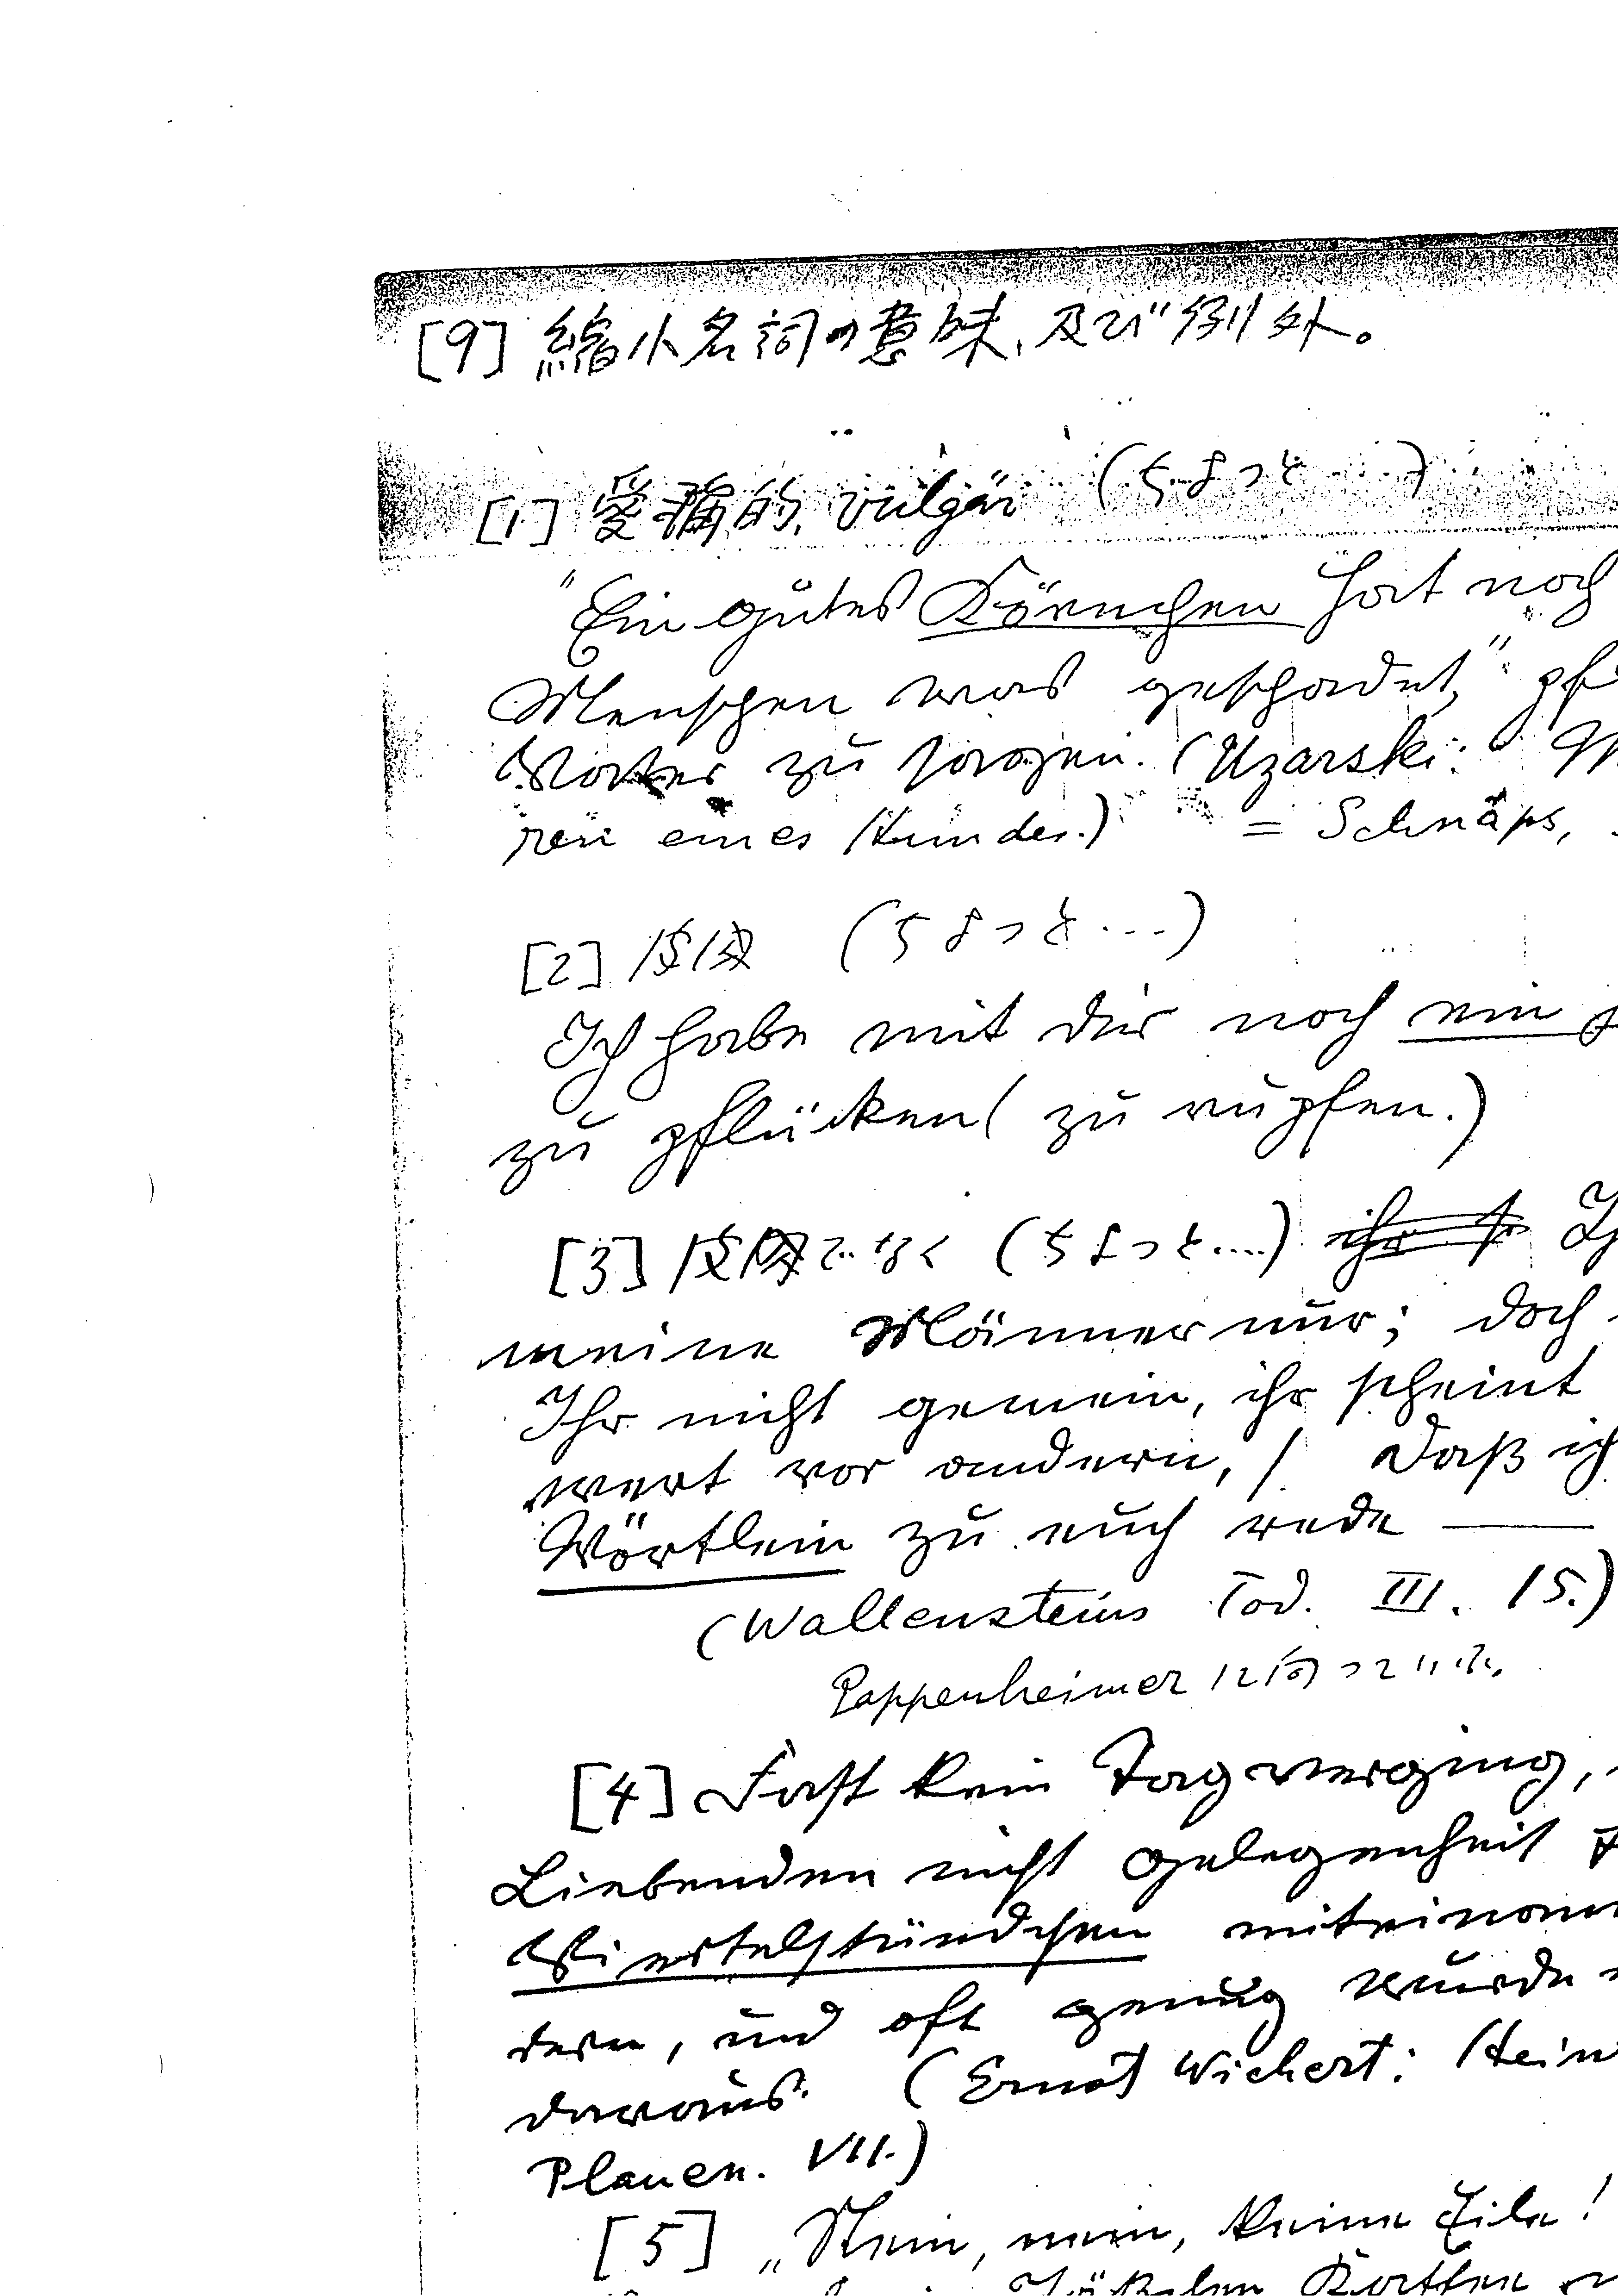 [9] 縮小名詞の意味、及び例外。
[1] 愛称的, vulgär (ちょつと……)
"Ein gutes Körnchen hat noch
Menschen was geschadet,"
Vater zu sagen. (Uzarski:
ren eines Hundes.) = Schnaps,
[2] 皮肉 (ちよつと…)
Ich habe mit dir noch ein
zu pflücken (zu rupfen.)
[3] 皮肉でなく (ちよつと....)
meine Männer nur; doch
Ihr nicht gemein, ihr scheint
wert vor andern, / Daß ich
Wörtlein zu euch rede —
(Wallensteins Tod. III. 15.)
Pappenheimer に向つていふ。
[4] Fast kein Tag verging,
Liebenden nicht Gelegenheit
Viertelstündchen miteinan
dern, und oft genug wurde
daraus. (Ernst Wichert: Hein
Plauen. VII.)
[5] „Nein, nein, keine Eile!